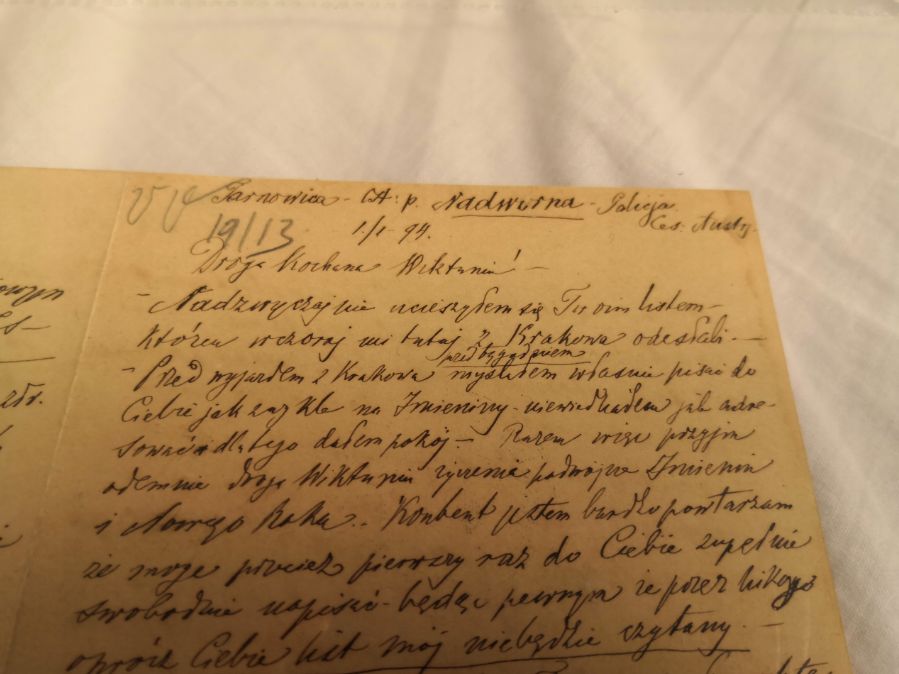 Tarnowica - p. Nadworna - Galicja
Ces: Austr.
19/13
1/1 94.
Droga Kochana Wiktuniu! -
- Nadzwyczajnie ucieszyłem się Twoim listem -
który wczoraj mi tutaj z Krakowa odesłali. -
przed tygodniem
- Przed wyjazdem z Krakowa myślałem właśnie pisać do
Ciebie jak zwykle na Imieniny - niewiedziałem jak adre-
sować i dlatego dałem pokój - Razem więc przyjm
odemnie droga Wiktuniu życzenia podwójne Imienin
i Nowego Roku. - Kontent jestem bardzo powtarzam
że mogę przecież pierwszy raz do Ciebie zupełnie
swobodnie napisać - będąc pewnym że przez nikogo
oprócz Ciebie list mój niebędzie czytany. -